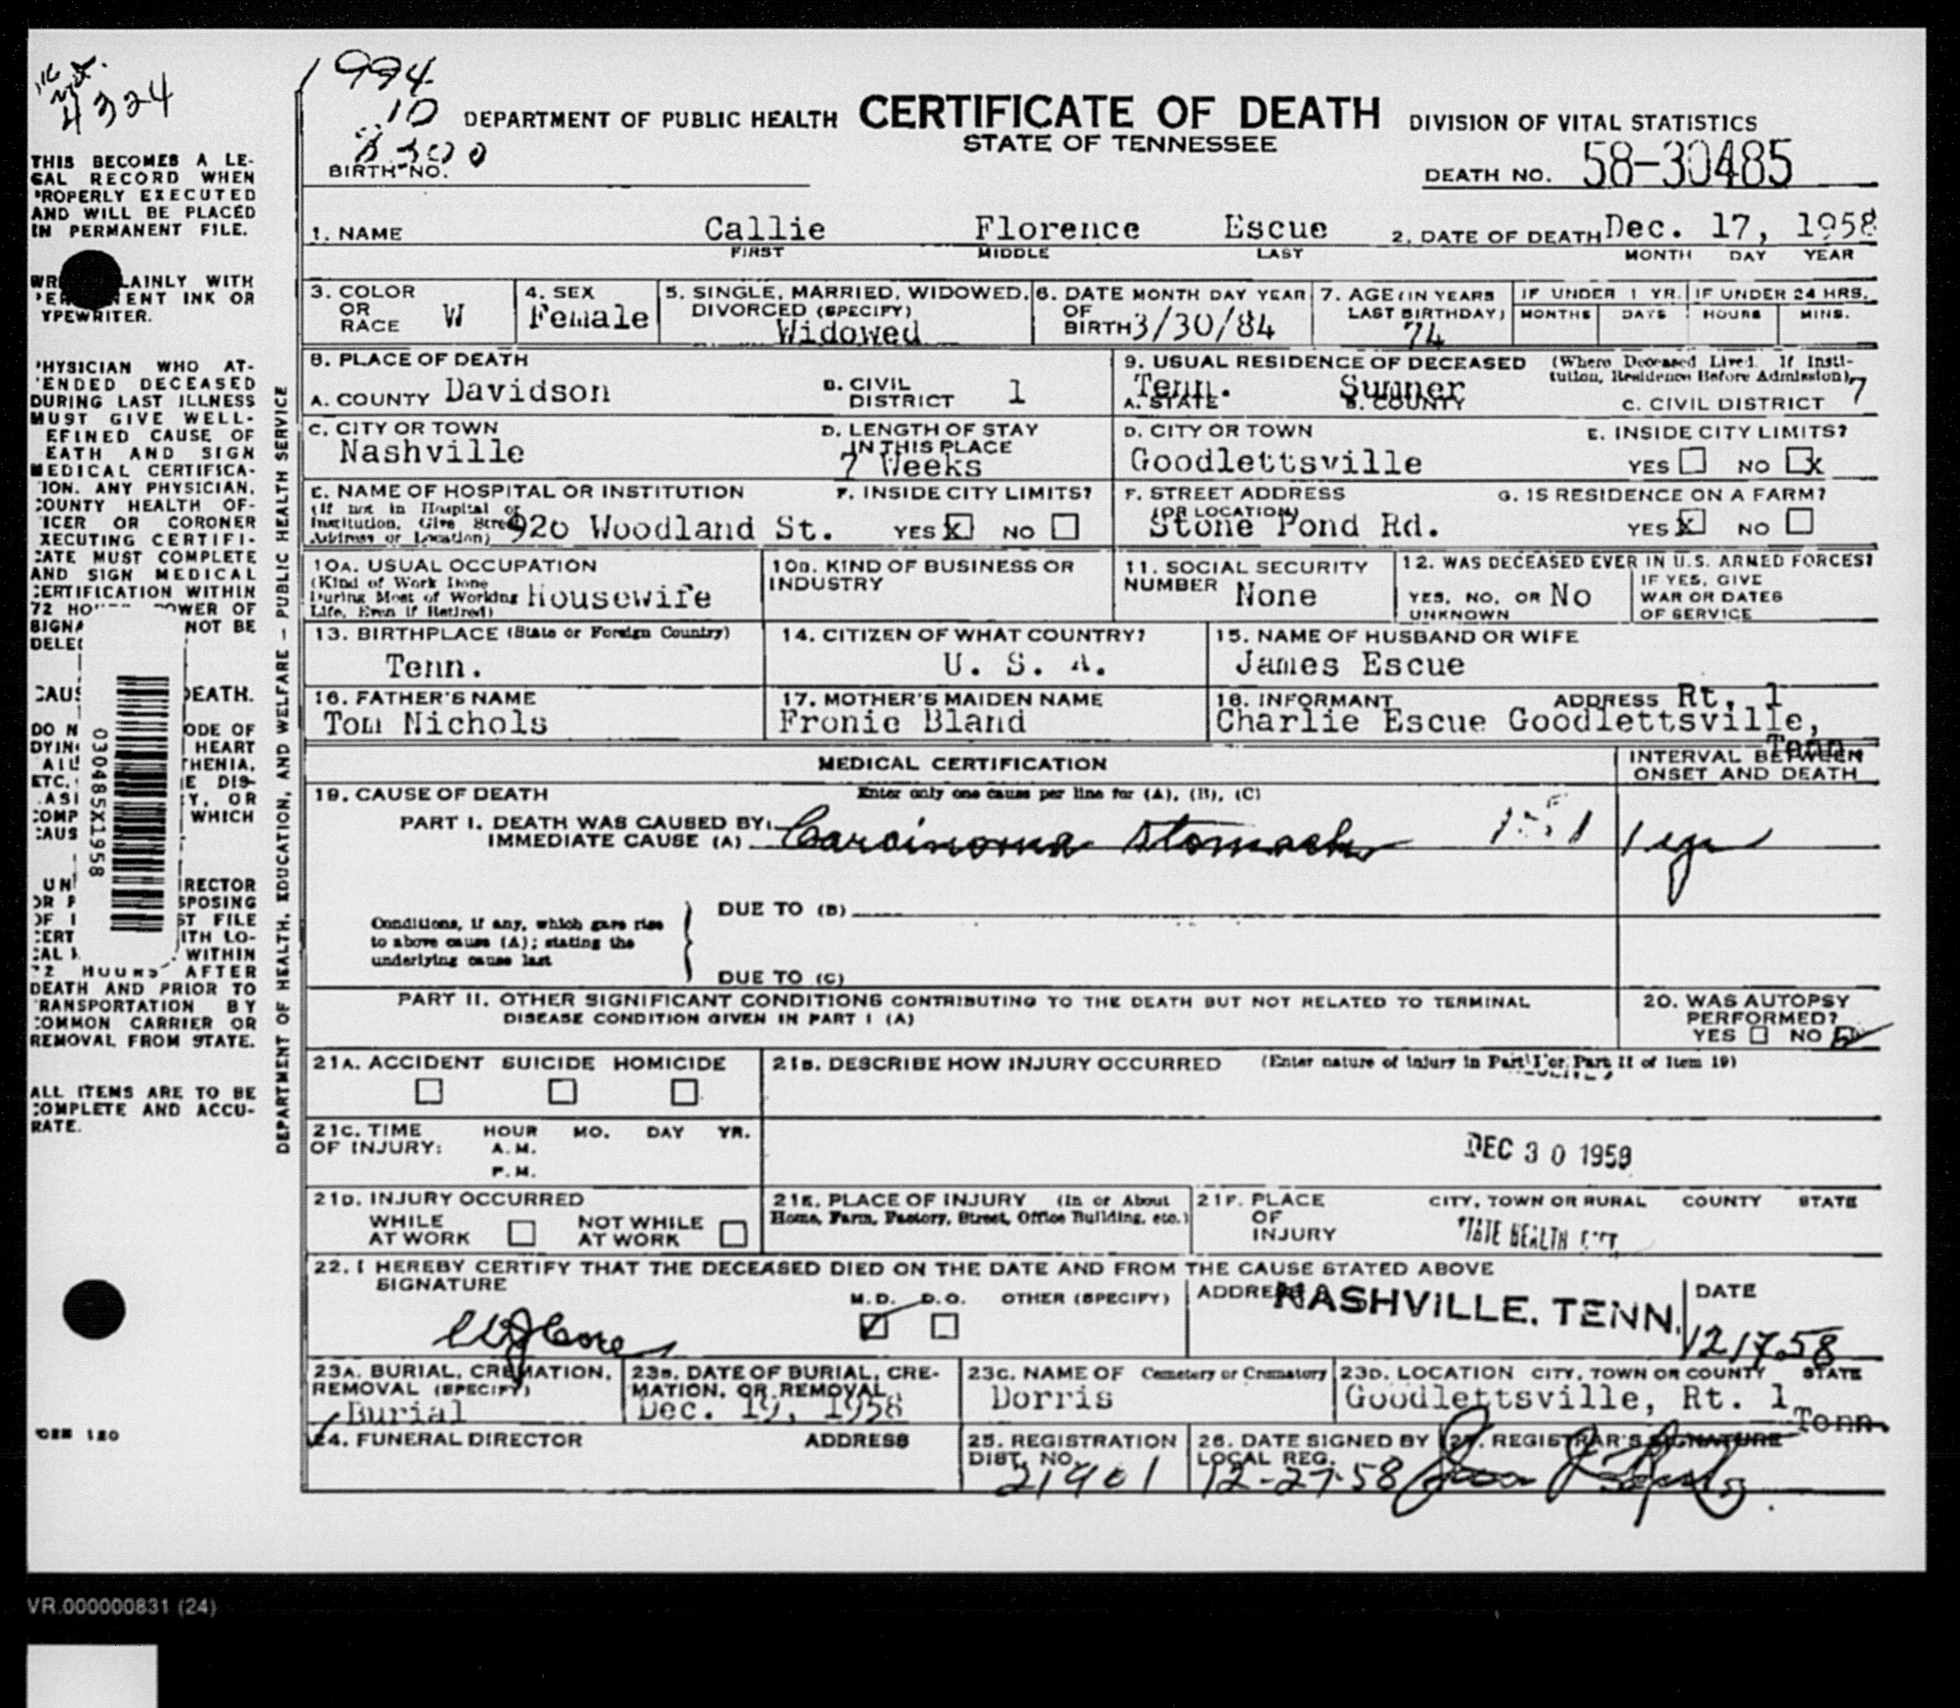 4324
THIS BECOMES A LE-
GAL RECORD WHEN
PROPERLY EXECUTED
AND WILL BE PLACED
IN PERMANENT FILE.
LAINLY WITH
ENT INK OR
YPEWRITER.
HYSICIAN WHO AT-
ENDED DECEASED
DURING LAST ILLNESS
MUST GIVE WELL-
EFINED CAUSE OF
EATH AND SIGN
MEDICAL CERTIFICA-
ION. ANY PHYSICIAN,
COUNTY HEALTH OF-
ICER OR CORONER
XECUTING CERTIFI-
CATE MUST COMPLETE
AND SIGN MEDICAL
CERTIFICATION WITHIN
72 HO OWER OF
SIGNA NOT BE
DELE
CAUS DEATH.
DO N ODE OF
DYIN HEART
AIL THENIA,
ETC. E DIS-
ASI Y, OR
COMP WHICH
CAUS
UN IRECTOR
OR SPOSING
OF ST FILE
CERT ITH LO-
CAL WITHIN
72 HOURS AFTER
DEATH AND PRIOR TO
TRANSPORTATION BY
COMMON CARRIER OR
REMOVAL FROM STATE.
ALL ITEMS ARE TO BE
COMPLETE AND ACCU-
RATE.
030485X1958
DEPARTMENT OF HEALTH, EDUCATION, AND WELFARE - PUBLIC HEALTH SERVICE
1994
10
8300
DEPARTMENT OF PUBLIC HEALTH CERTIFICATE OF DEATH DIVISION OF VITAL STATISTICS
STATE OF TENNESSEE
BIRTH NO. DEATH NO. 58-30485
1. NAME Callie Florence Escue 2. DATE OF DEATH Dec. 17, 1958
FIRST MIDDLE LAST MONTH DAY YEAR
3. COLOR OR RACE W 4. SEX Female 5. SINGLE, MARRIED, WIDOWED, DIVORCED (SPECIFY) Widowed 6. DATE OF BIRTH MONTH DAY YEAR 3/30/84 7. AGE (IN YEARS LAST BIRTHDAY) 74 IF UNDER 1 YR. MONTHS DAYS IF UNDER 24 HRS. HOURS MINS.
8. PLACE OF DEATH 9. USUAL RESIDENCE OF DECEASED (Where Deceased Lived. If Insti-
tution, Residence Before Admission)
A. COUNTY Davidson B. CIVIL DISTRICT 1 A. STATE Tenn. B. COUNTY Sumner C. CIVIL DISTRICT 7
C. CITY OR TOWN Nashville D. LENGTH OF STAY IN THIS PLACE 7 Weeks D. CITY OR TOWN Goodlettsville E. INSIDE CITY LIMITS? YES NO X
E. NAME OF HOSPITAL OR INSTITUTION (If not in Hospital or Institution, Give Street Address or Location) 920 Woodland St. F. INSIDE CITY LIMITS? YES X NO F. STREET ADDRESS (OR LOCATION) Stone Pond Rd. G. IS RESIDENCE ON A FARM? YES X NO
10A. USUAL OCCUPATION (Kind of Work Done During Most of Working Life, Even if Retired) Housewife 10B. KIND OF BUSINESS OR INDUSTRY 11. SOCIAL SECURITY NUMBER None 12. WAS DECEASED EVER IN U.S. ARMED FORCES? YES, NO, OR UNKNOWN No IF YES, GIVE WAR OR DATES OF SERVICE
13. BIRTHPLACE (State or Foreign Country) Tenn. 14. CITIZEN OF WHAT COUNTRY? U. S. A. 15. NAME OF HUSBAND OR WIFE James Escue
16. FATHER'S NAME Tom Nichols 17. MOTHER'S MAIDEN NAME Fronie Bland 18. INFORMANT ADDRESS Rt. 1
Charlie Escue Goodlettsville, Tenn.
MEDICAL CERTIFICATION INTERVAL BETWEEN ONSET AND DEATH
19. CAUSE OF DEATH Enter only one cause per line for (A), (B), (C)
PART I. DEATH WAS CAUSED BY:
IMMEDIATE CAUSE (A) Carcinoma Stomach 151 1 yr
DUE TO (B)
Conditions, if any, which gave rise
to above cause (A); stating the
underlying cause last
DUE TO (C)
PART II. OTHER SIGNIFICANT CONDITIONS CONTRIBUTING TO THE DEATH BUT NOT RELATED TO TERMINAL
DISEASE CONDITION GIVEN IN PART I (A)
20. WAS AUTOPSY PERFORMED? YES NO
21A. ACCIDENT SUICIDE HOMICIDE 21B. DESCRIBE HOW INJURY OCCURRED (Enter nature of injury in Part I or Part II of Item 19)
21C. TIME OF INJURY: HOUR MO. DAY YR.
A.M.
P.M.
DEC 30 1958
21D. INJURY OCCURRED WHILE AT WORK NOT WHILE AT WORK 21E. PLACE OF INJURY (In or About Home, Farm, Factory, Street, Office Building, etc.) 21F. PLACE OF INJURY CITY, TOWN OR RURAL COUNTY STATE
TATE HEALTH
22. I HEREBY CERTIFY THAT THE DECEASED DIED ON THE DATE AND FROM THE CAUSE STATED ABOVE
SIGNATURE M.D. D.O. OTHER (SPECIFY) ADDRESS NASHVILLE, TENN. DATE 12 17 58
23A. BURIAL, CREMATION, REMOVAL (SPECIFY) Burial 23B. DATE OF BURIAL, CRE-MATION, OR REMOVAL Dec. 19, 1958 23C. NAME OF Cemetery or Crematory Dorris 23D. LOCATION CITY, TOWN OR COUNTY STATE Goodlettsville, Rt. 1 Tenn.
24. FUNERAL DIRECTOR ADDRESS 25. REGISTRATION DIST. NO. 21901 26. DATE SIGNED BY LOCAL REG. 12-27-58 27. REGISTRAR'S SIGNATURE
VR.000000831 (24)